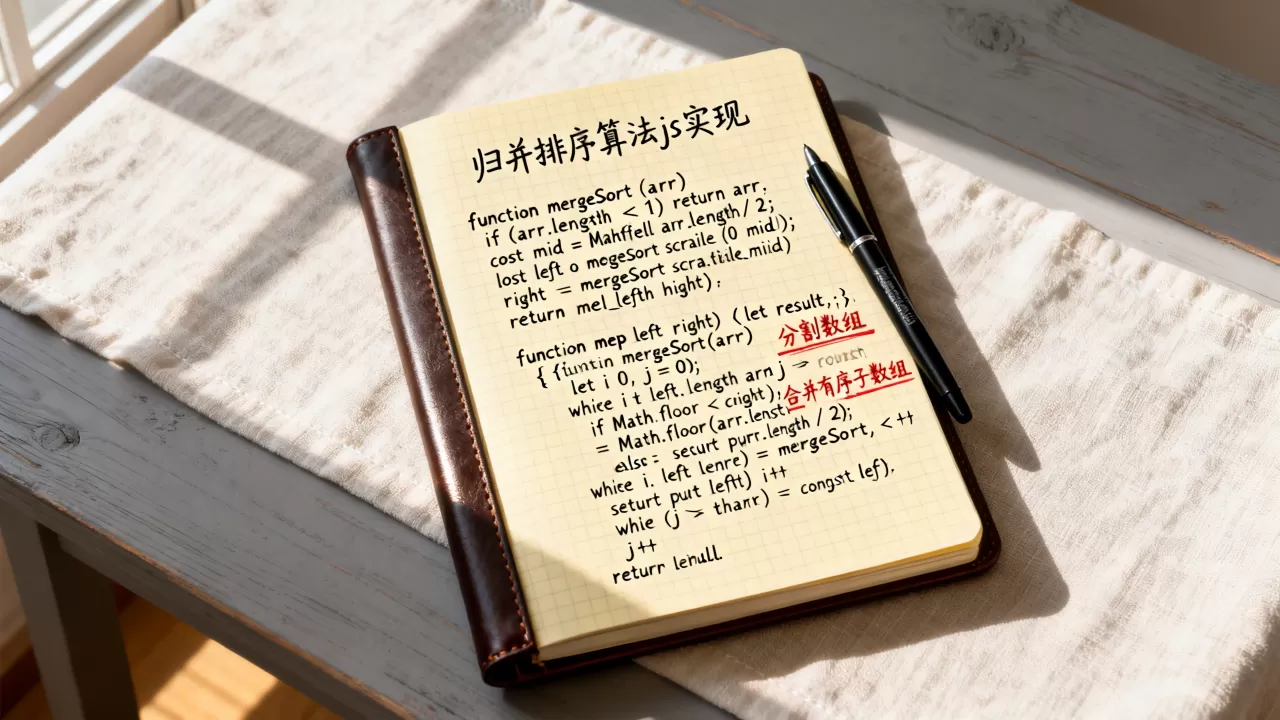 归并排序算法js实现
function mergeSort (arr)
if (arr.length < 1) return arr.
cost mid = Mahffell arr.length / 2;
lost left o mogeSort scraile (0 mid!);
right = mergeSort scra.file_miid)
return mel_lefth hight).
function mep left right) (let result,;}.
分割数组
{ function mergeSort(arr)
let i 0, j = 0);
while i t left.length arn j >
合并有序子数组
if Math.floor < cright);
= Math.floor(arr.lenst / 2);
else: securt purr.length / 2);
while i. left lenre) = mergeSort, < ++
seturt put left) i++
while (j > tharr) = congst lef),
j++
return lenull.